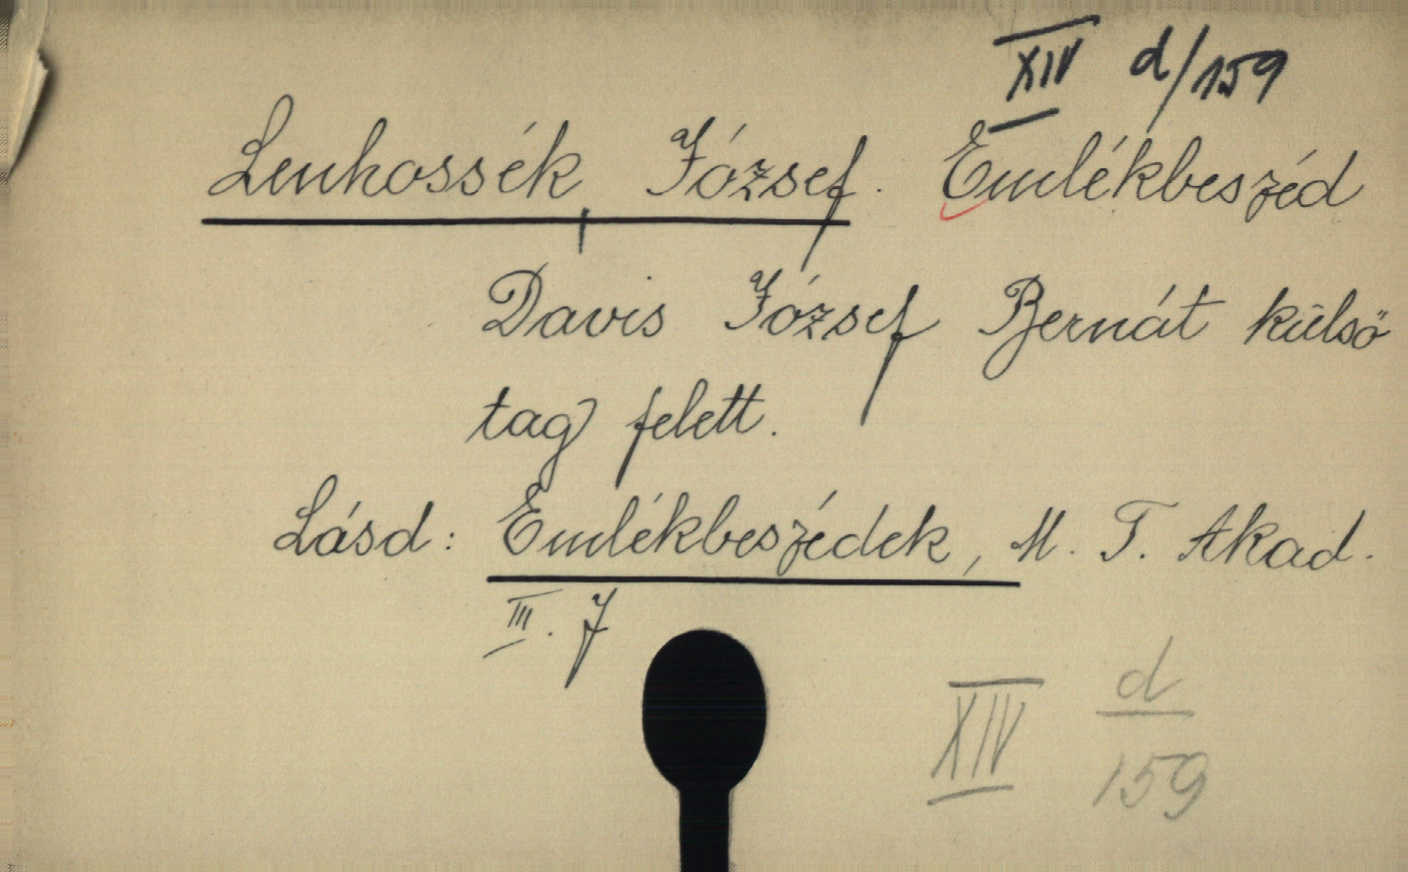 XIV d/159
Lenhossék, József. Emlékbeszéd
Davis József Bernát külső
tag felett.
Lásd: Emlékbeszédek, M. T. Akad.
III. 7
XIV d/159